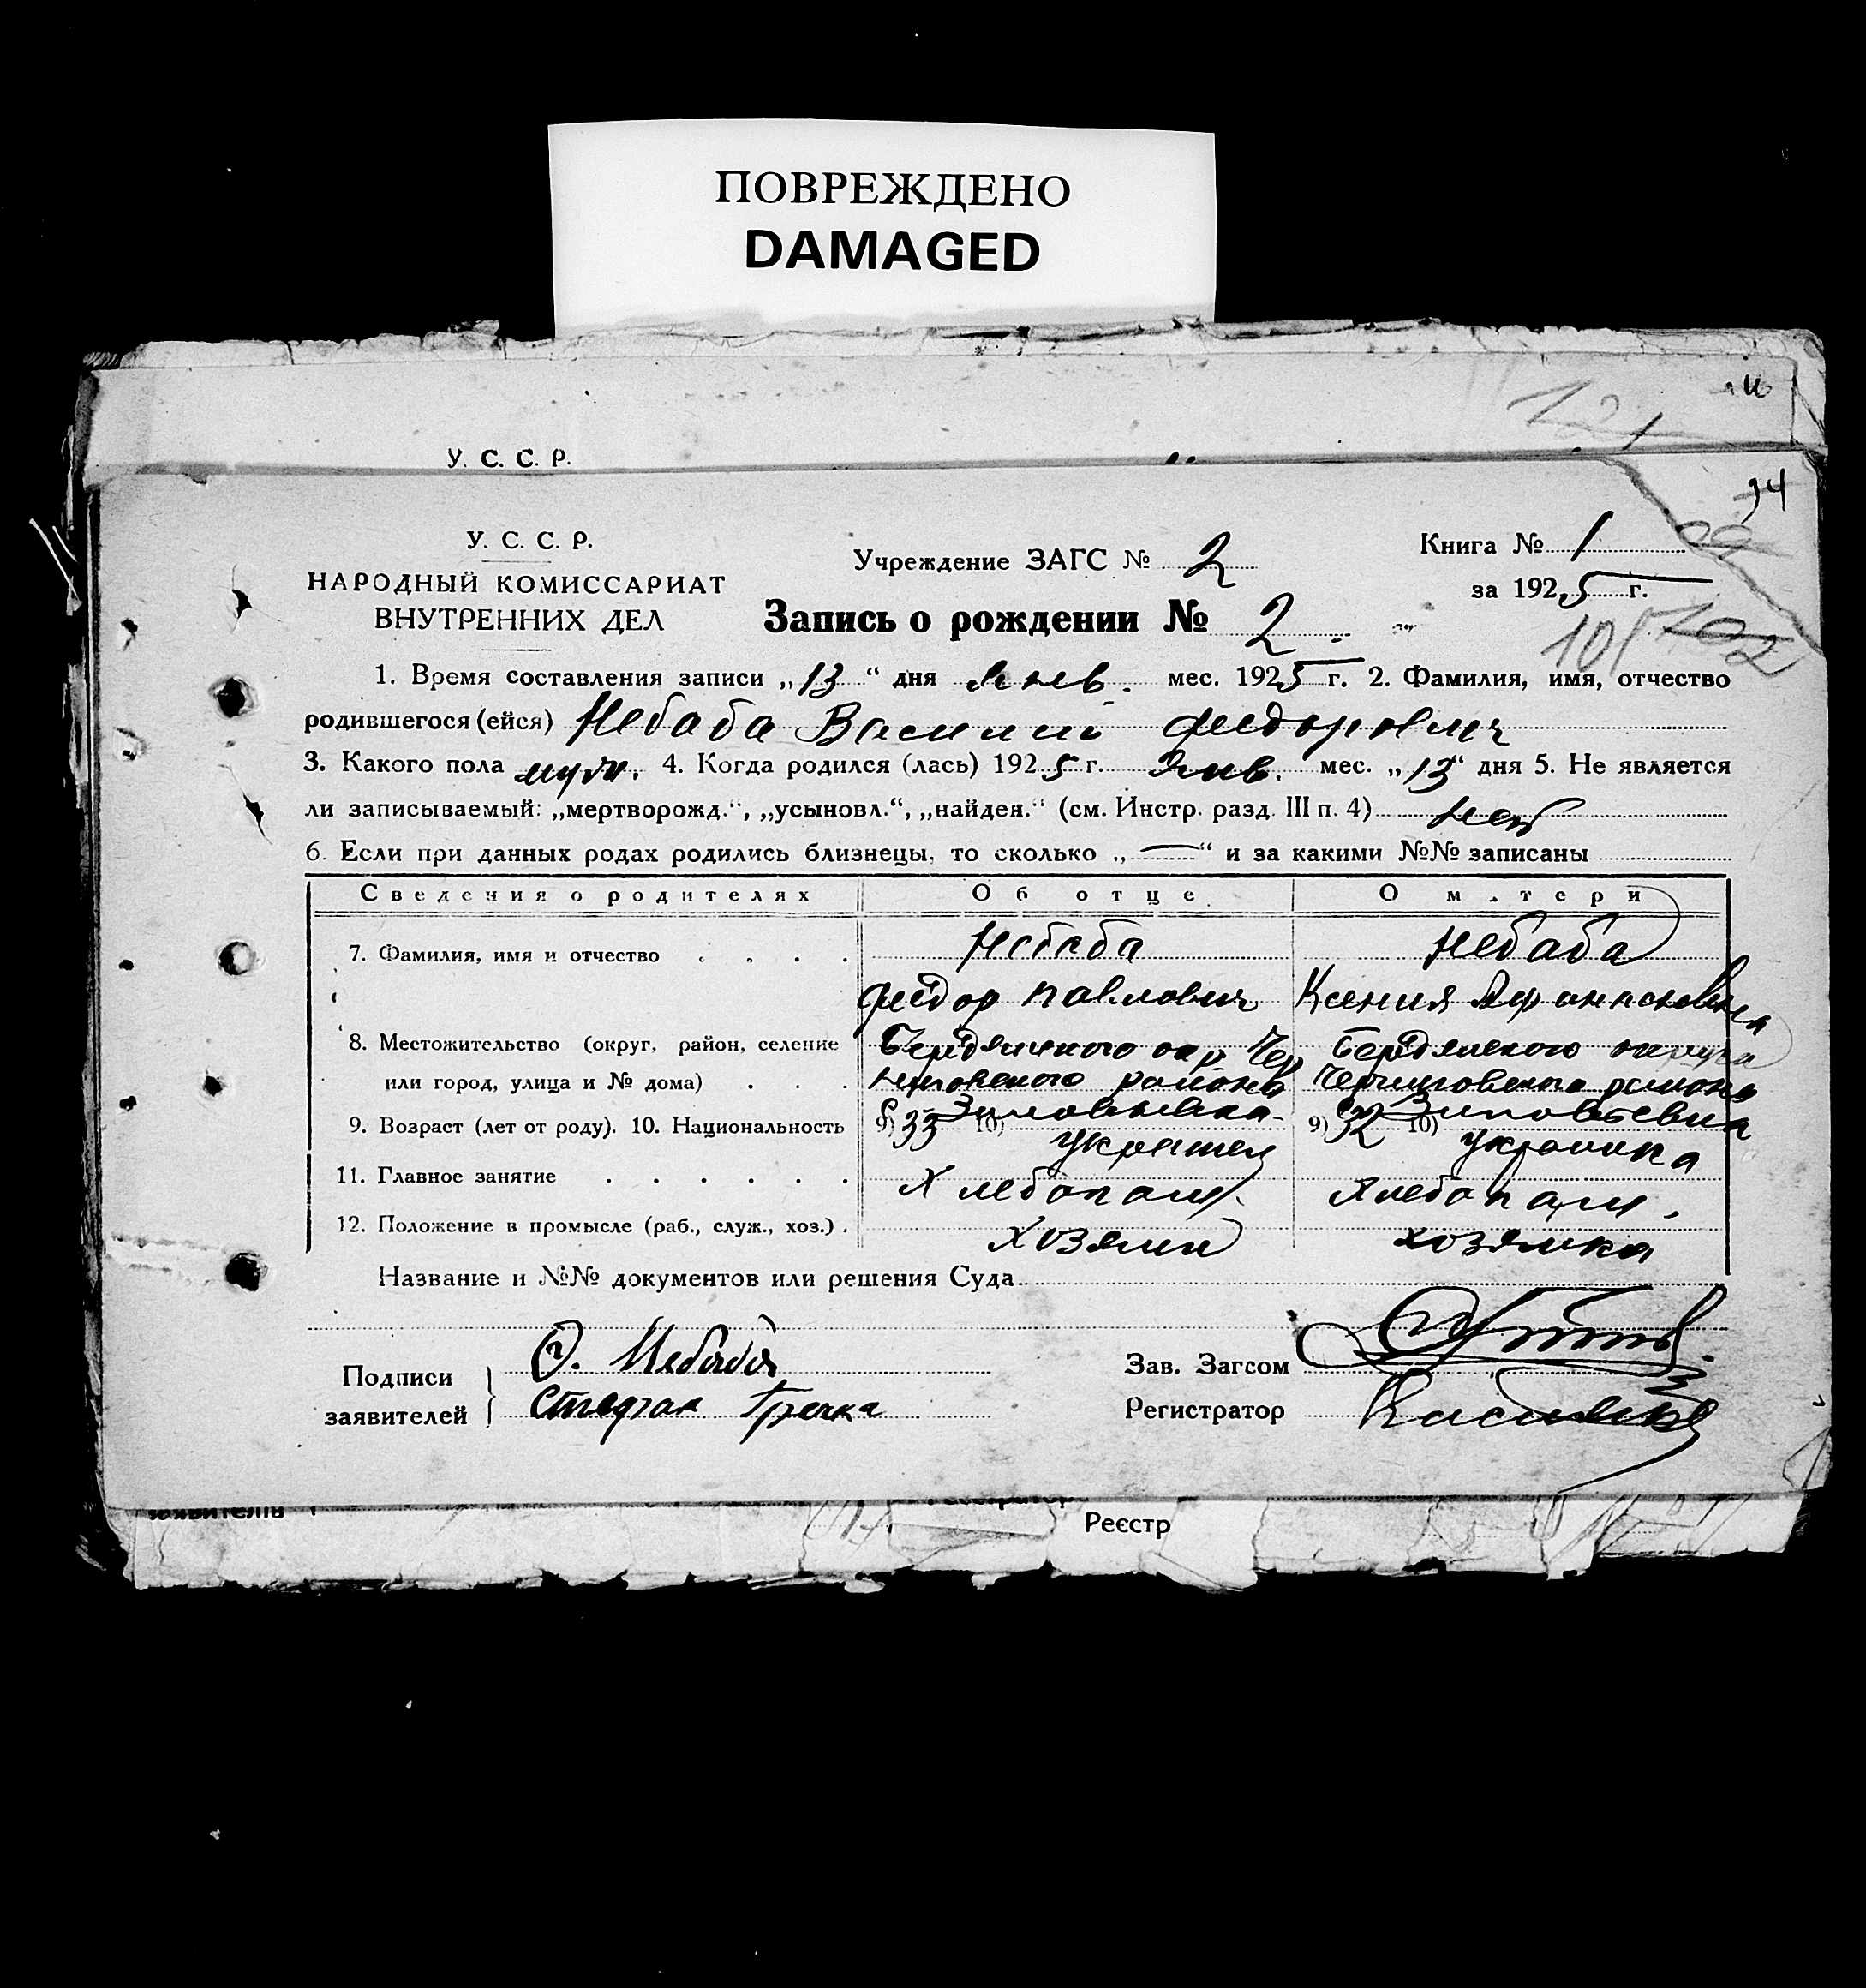 ПОВРЕЖДЕНО
DAMAGED
121
У. С. С. Р.
94
У. С. С. Р.
НАРОДНЫЙ КОМИССАРИАТ
ВНУТРЕННИХ ДЕЛ
Учреждение ЗАГС № 2
Книга № 1
за 1925 г.
Запись о рождении № 2
101 102
1. Время составления записи „13“ дня Янв. мес. 1925 г. 2. Фамилия, имя, отчество
родившегося (ейся) Небаба Василий Федорович
3. Какого пола муж. 4. Когда родился (лась) 1925 г. Янв. мес. „13“ дня 5. Не является
ли записываемый: „мертворожд.“, „усыновл.“, „найден.“ (см. Инстр. разд. III п. 4) нет
6. Если при данных родах родились близнецы, то сколько „—“ и за какими №№ записаны
Сведения о родителях Об отце О матери
7. Фамилия, имя и отчество Небаба Небаба
Федор Павлович Ксения Афанасиевна
8. Местожительство (округ, район, селение Бердянского окр. Чер Бердянского округа
или город, улица и № дома) ниговского района Черниговского района
9. Возраст (лет от роду). 10. Национальность 9) 33 10) 9) 32 10)
Украинец Украинка
11. Главное занятие Хлебопаш. Хлебопаш.
12. Положение в промысле (раб., служ., хоз.) Хозяин хозяйка
Название и №№ документов или решения Суда
Подписи
заявителей
Ф. Небаба
Стефан Гречка
Зав. Загсом
Регистратор
заявителів
Реєстр